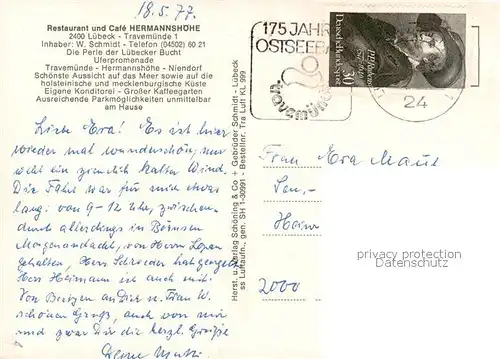 18.5.77.
Restaurant und Café HERMANNSHÖHE
2400 Lübeck - Travemünde 1
Inhaber: W. Schmidt - Telefon (04502) 60 21
Die Perle der Lübecker Bucht
Uferpromenade
Travemünde - Hermannshöhe - Niendorf
Schönste Aussicht auf das Meer sowie auf die
holsteinische und mecklenburgische Küste
Eigene Konditorei - Großer Kaffeegarten
Ausreichende Parkmöglichkeiten unmittelbar
am Hause
Liebe Eva! Es ist hier
wieder mal wunderschön, nur
weht ein ziemlich kalter Wind.
Die Fahrt war für mich etwas
lang: von 9-12 Uhr, zwischen-
durch allerdings in Börnsen
Morgenandacht, von Herrn
gehalten, Herr Schroeder hat
Herr Heimann ist auch mit.
Von an Dir u. Frau W.
schönen Gruß, auch von mir
und zwar Dir die herzl. Grüße
Deine Mutti
Herst. u. Verlag Schöning & Co + Gebrüder Schmidt - Lübeck
ss Luftaufn., gen. SH 1-30091 - Bestellnr. Tra Luft KL 999
175 JAHRE
OSTSEEBAD
travemünde
Deutsche Bundespost
30
24
Frau Eva Maue
Sen.-
Heim
2000
privacy protection
watermark